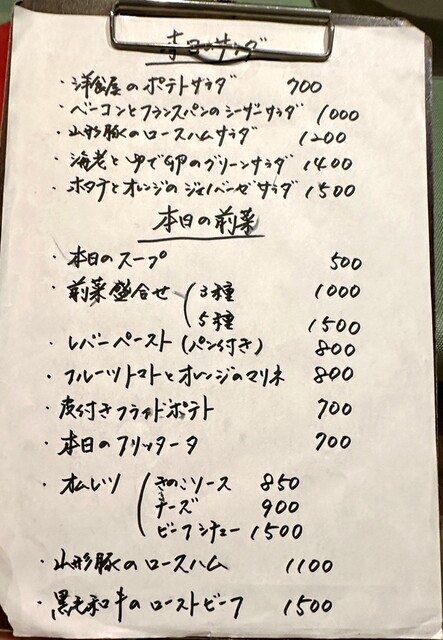 本日のサラダ
・洋食屋のポテトサラダ 700
・ベーコンとフランスパンのシーザーサラダ 1000
・山形豚のロースハムサラダ 1200
・海老とゆで卵のグリーンサラダ 1400
・ホタテとオレンジのジェノベーゼサラダ 1500
本日の前菜
・本日のスープ 500
・前菜盛合せ ( 3種 1000
5種 1500
・レバーペースト (パン付き) 800
・フルーツトマトとオレンジのマリネ 800
・皮付きフライドポテト 700
・本日のフリッタータ 700
・オムレツ ( きのこソース 850
チーズ 900
ビーフシチュー 1500
・山形豚のロースハム 1100
・黒毛和牛のローストビーフ 1500